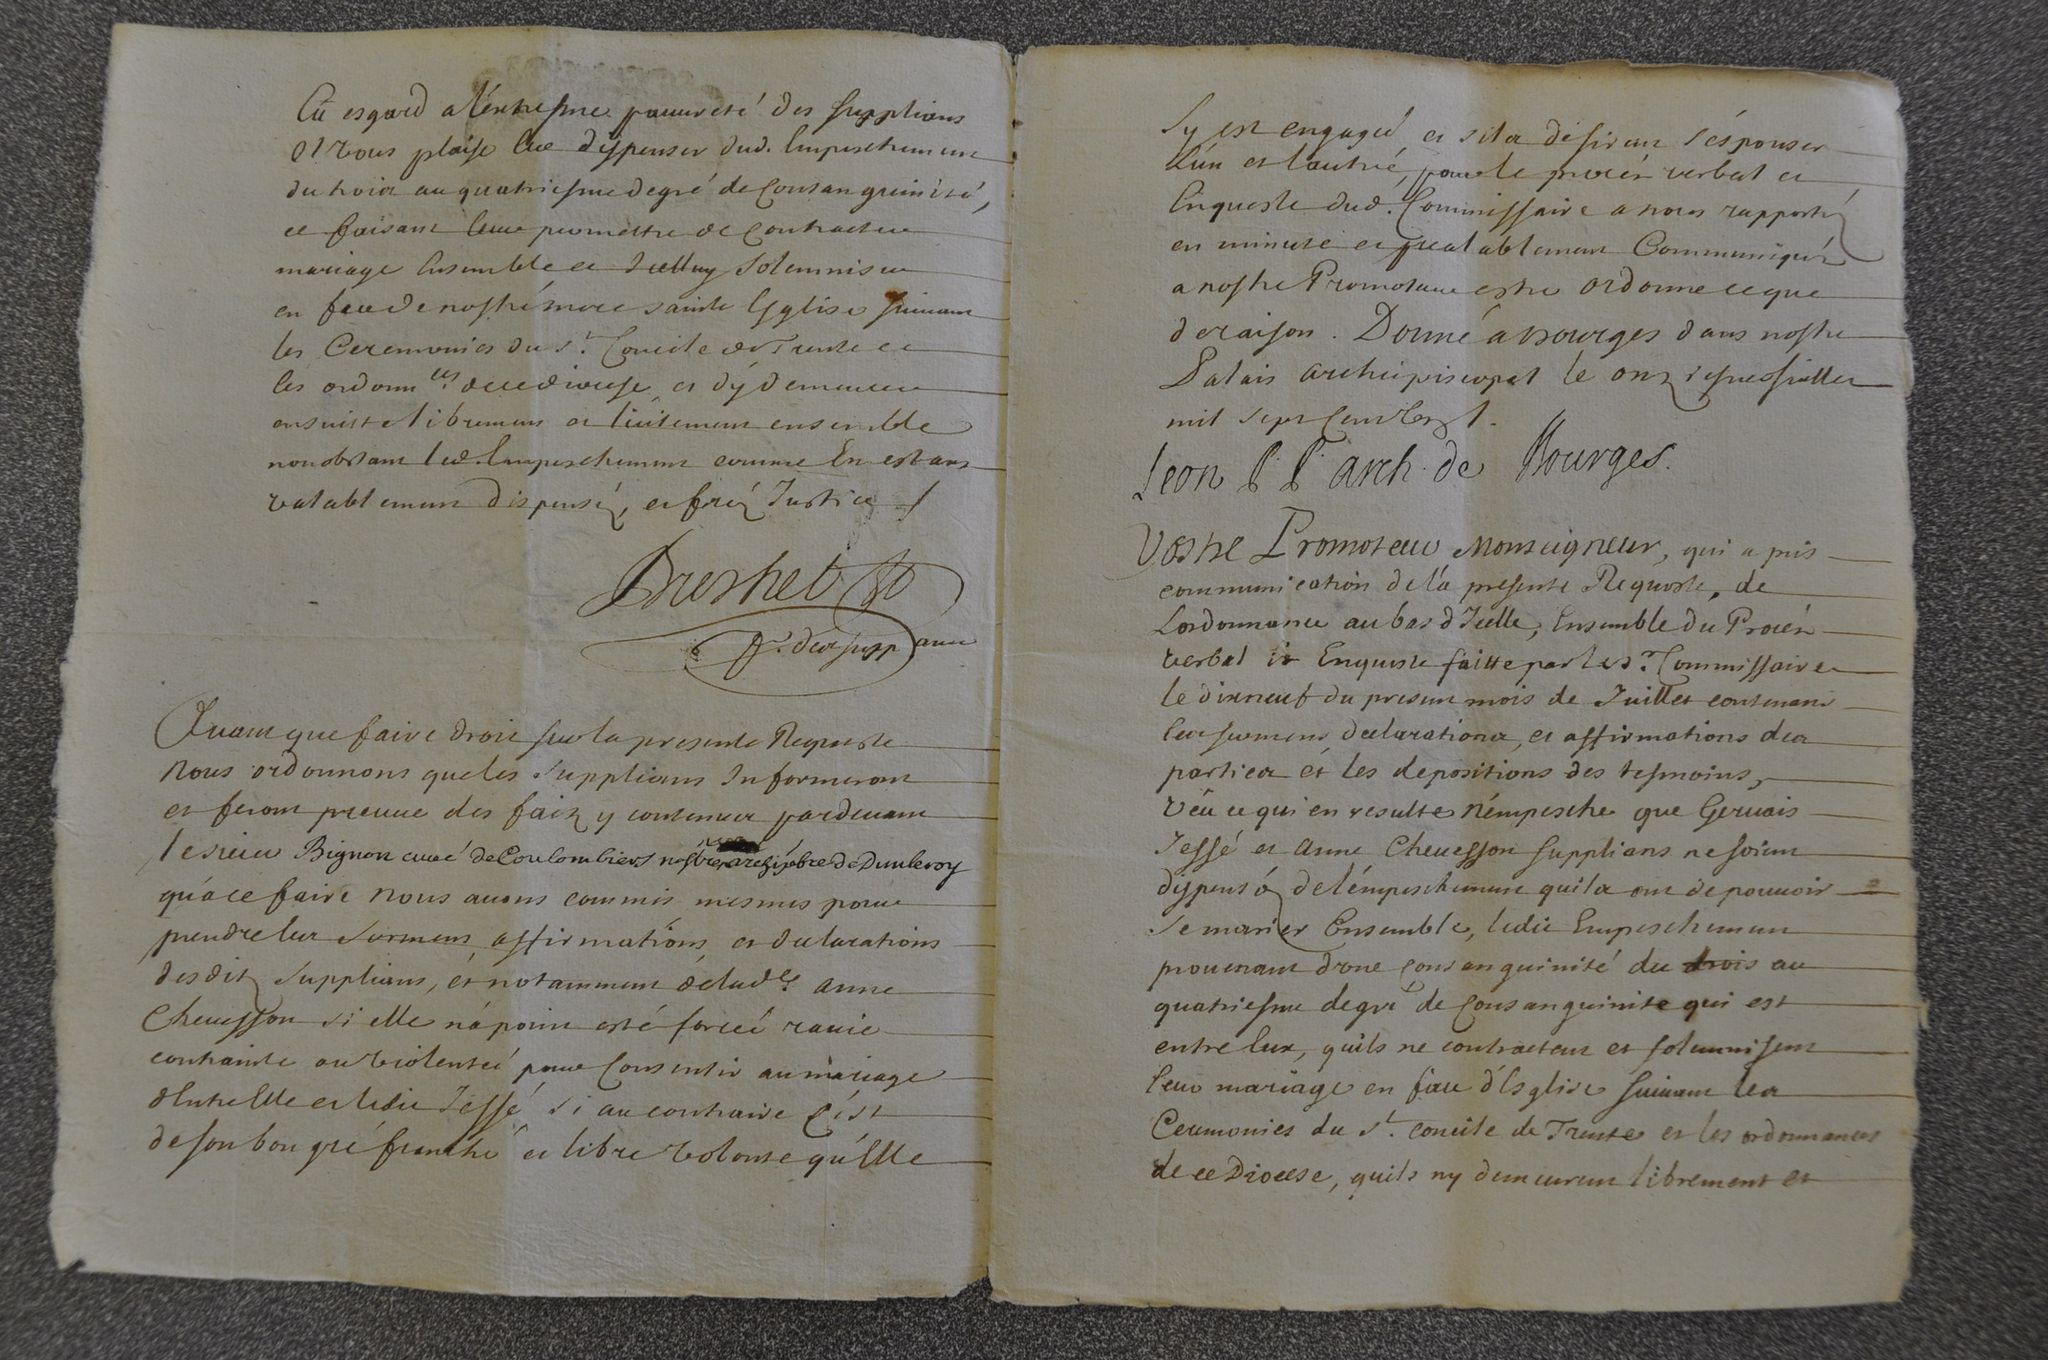 Eü esgard a l'extresme pauvreté des supplians
Il vous plaise les dispenser dud. Empeschement
du trois au quatriesme degré de Consanguinité,
ce faisant leur permettre de Contracter
mariage Ensemble et Icelluy Solemniser
en face de nostre mere sainte Esglise suivant
les Ceremonies du St. Concile de Trente et
les ordonnces. de ce diocese, et d'y demeurer
ensuitte librement et licitement ensemble
nonobstant led. Empeschement comme En estans
valablement dispensez, et ferez Justice
pr. des supp ans
Avant que faire droit sur la presente Requeste
Nous ordonnons que les Supplians Informeront
et feront preuve des faitz y contenus pardevant
le sieur Bignon curé de Coulombiers nostre archiprêtre de Dunleroy
qu'a ce faire Nous avons commis mesmes pour
prendre les sermens, affirmations, et declarations
desditz Supplians, et notamment de lade. anne
Chevesson si elle n'a point esté forcée ravie
contrainte ou violentée pour Consentir au mariage
d'Entre Elle et ledit Jessé, si au contraire C'est
de son bon gré franche et libre volonté qu'Elle
S'y est engagée, et s'ils desirent s'espouser
l'un et l'autre, pour le procés verbal et
Enqueste dud. Commissaire a nous rapportéz
en minute et prealablement Communiquéz
a nostre Promoteur estre ordonné ce que
de raison. Donné a Bourges dans nostre
Palais archiepiscopal le onziesme Juillet
mil sept Cent
Leon P. P. arch. de Bourges.
Vostre Promoteur Monseigneur, qui a pris
communication de la presente Requeste, de
L'ordonnance au bas d'Icelle, Ensemble du Procés
verbal et Enqueste faitte par led. sr. Commissaire
le dixneuf du present mois de Juillet contenans
les sermens, declarations, et affirmations des
parties et les depositions des tesmoins,
Veü ce qui en resulte N'empesche que Gervais
Jessé et Anne Chevesson supplians ne soient
dispensez de l'empeschement qu'ils ont de pouvoir
se marier Ensemble, ledit Empeschement
provenant d'une Consanguinité du trois au
quatriesme degré de Consanguinité qui est
entre Eux, qu'ils ne contractent et solemnisent
leur mariage en face d'Esglise suivant les
Ceremonies du St. concile de Trente et les ordonnances
de ce Diocese, qu'ils n'y demeurent librement et